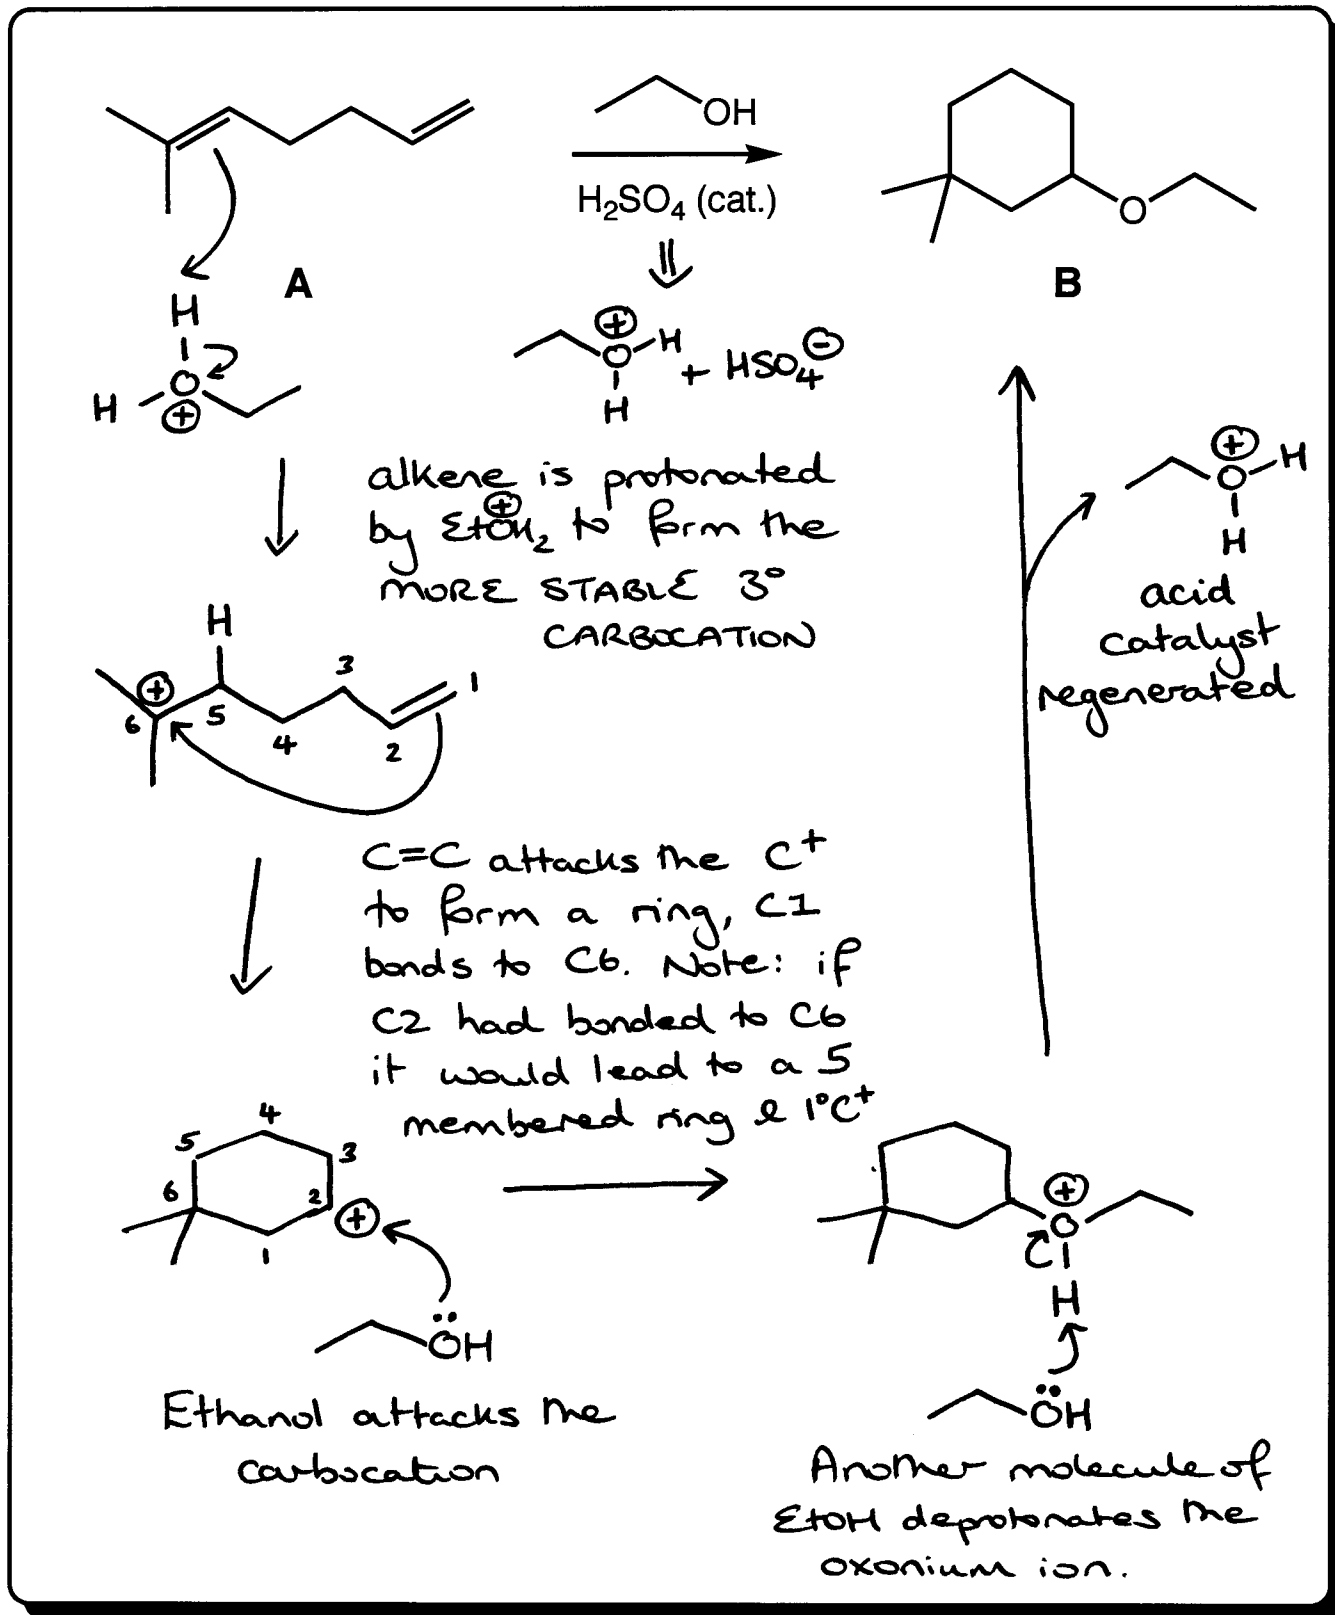 OH
H₂SO₄ (cat.)
O
A
B
H
H O ⊕
⊕ O H
H
+ HSO₄ ⊖
alkene is protonated
by EtOH₂ ⊕ to form the
MORE STABLE 3°
CARBOCATION
⊕ O H
H
acid
catalyst
regenerated
H
⊕ 6 5 4 3 2 1
C=C attacks the C⁺
to form a ring, C1
bonds to C6. Note: if
C2 had bonded to C6
it would lead to a 5
membered ring & 1°C⁺
4
5 3
6 2 ⊕
1
ÖH
Ethanol attacks the
carbocation
⊕
O
H
ÖH
Another molecule of
EtOH deprotonates the
oxonium ion.